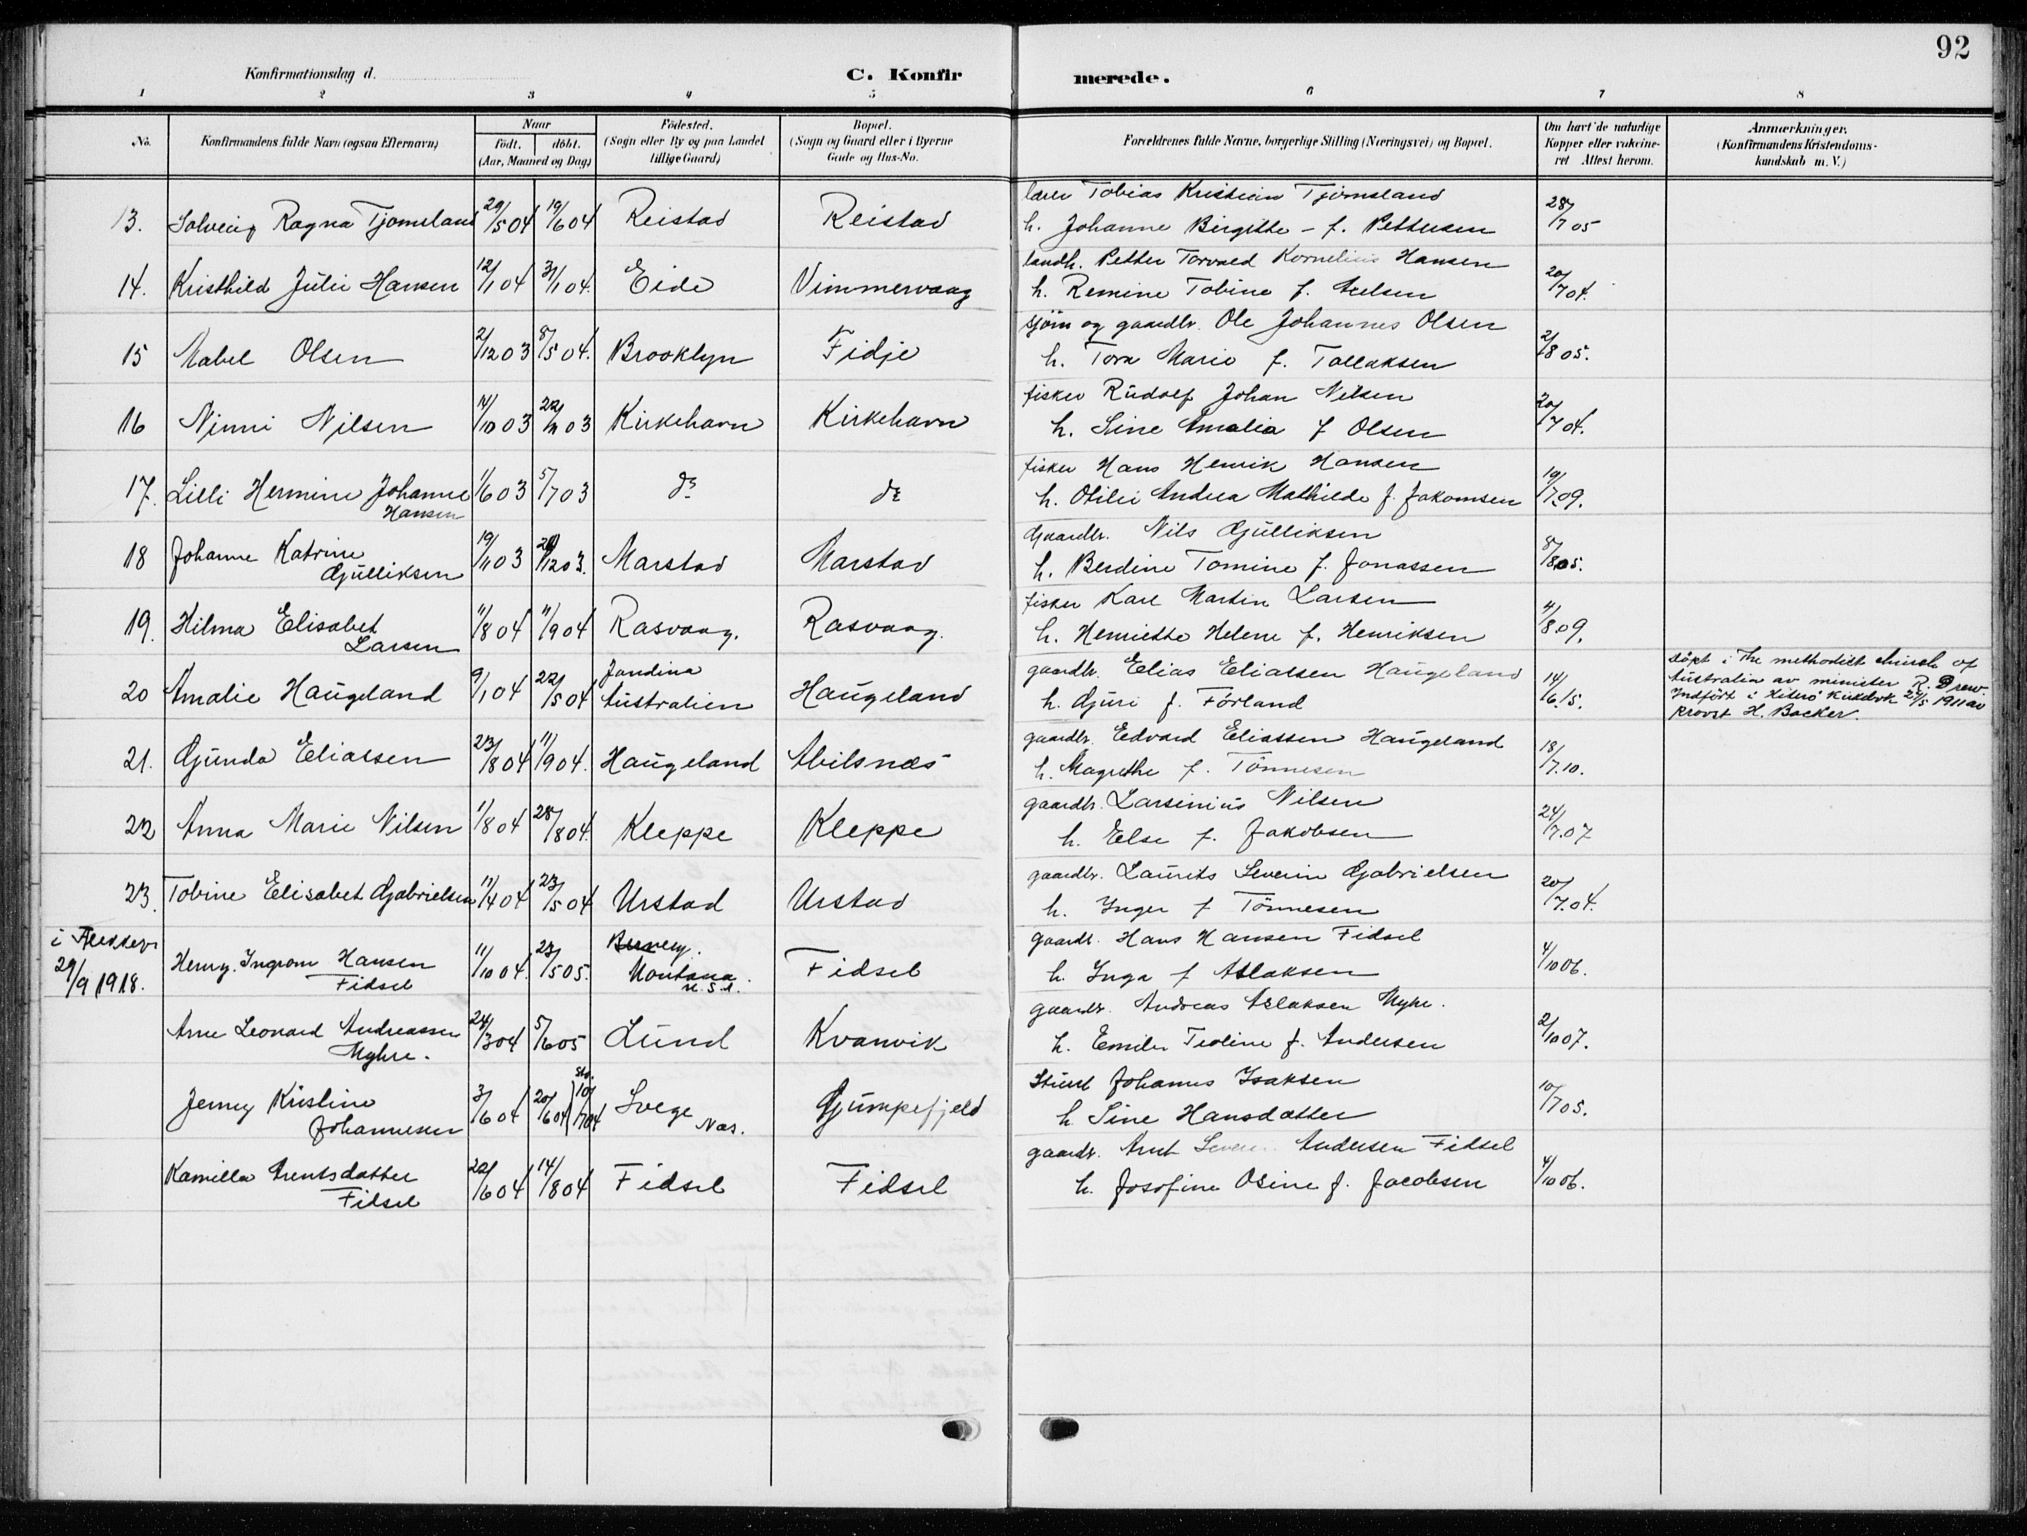 92
Konfirmationsdag d.
C. Konfirmerede.
1 2 3 4 5 6 7 8
No.
Konfirmandens fulde Navn (ogsaa Efternavn)
Naar
födt. döbt.
(Aar, Maaned og Dag)
Födested.
(Sogn eller By og paa Landet
tillige Gaard)
Bopæl.
(Sogn og Gaard eller i Byerne
Gade og Hus-No.
Forældrenes fulde Navne, borgerlige Stilling (Næringsvei) og Bopæl.
Om havt de naturlige
Kopper eller vakcine-
ret Attest herom.
Anmærkninger.
(Konfirmandens Kristendoms-
kundskab m. V.)
13. Solveig Ragna Tjomsland 29/5 04 19/6 04 Reistad Reistad
lærer Tobias Kristian Tjömsland
h. Johanne Birgitte - f. Pettersen 28/7 05
14. Kristhild Julie Hansen 12/1 04 31/1 04. Eide Vimmervaag
landh. Petter Torvald Kornelius Hansen
h. Remine Tobine f. Axelsen 20/7 04.
15 Mabel Olsen 2/12 03 8/5 04. Brooklyn Fidje
sjöm og gaardbr. Ole Johannes Olsen
h. Tora Marie f. Tollaksen 2/8 05.
16 Ninni Nilsen 14/10 03 22/11 03 Kirkehavn Kirkehavn
fisker Rudolf Johan Nilsen
h. Sine Amalia f Olsen 20/7 04.
17. Lilli Hermine Johanne Hansen 1/6 03 5/7 03 do do
fisker Hans Henrik Hansen
h. Otilie Andrea Mathilde f. Jakomsen 19/7 09.
18 Johanne Katrine Gulliksen 19/11 03 20/12 03. Marstad Marstad
Gaardbr. Nils Gulliksen
h. Berdine Tomine f. Jonassen 8/8 05.
19. Hilma Elisabet Larsen 11/8 04 11/9 04 Rasvaag. Rasvaag.
fisker Karl Martin Larsen
h. Henriette Helene f. Henriksen 4/8 09.
20 Amalie Haugeland 9/1 04 22/5 04 Jundina Australien Haugeland
gaardbr. Elias Eliassen Haugeland
h. Guri f. Förland 14/6 15.
döpt i The methodist church of
Australia av minister R. Drew.
Indfört i Hiterö Kirkebok 27/5 1911 av
provst H. Backer.
21. Gunda Eliassen 23/8 04 11/9 04. Haugeland Abilsnæs
gaardbr. Edvard Eliassen Haugeland
h. Magrethe f. Tönnesen 18/7. 10.
22 Anna Marie Nilsen 1/8 04 28/8 04. Kleppe Kleppe
gaardbr. Larsinius Nilsen
h. Else f. Jakobsen 24/7. 07
23. Tobine Elisabet Gabrielsen 11/4 04 23/5 04 Urstad Urstad
gaardbr. Laurits Severin Gabrielsen
h. Inger f Tönnesen 20/7. 04.
i Flekkefj
29/9 1918.
Henry Ingrom Hansen Fidsel 11/10 04. 23/5 05. Montana U.S.A. Fidsel
gaardbr. Hans Hansen Fidsel
h. Inga f Aslaksen 4/10 06.
Arne Leonard Andreassen Myhre. 24/3 04 5/6 05 Lund Kvanvik
gaardbr. Andreas Aslaksen Myhre.
h. Emilie Teoline f. Andersen 2/10 07.
Jenny Kristine Johannesen 3/6 04 20/6 04 10/7 04 Svege Næs. Gumpefjeld
Johannes Isaksen
h Sine Hansdatter 10/7 05.
Kamilla Arentsdatter Fidsel 22/6 04 14/8 04 Fidsel Fidsel
gaardbr. Arnt Andersen Fidsel
h. Josofine Osine f. Jacobsen 4/10 06.